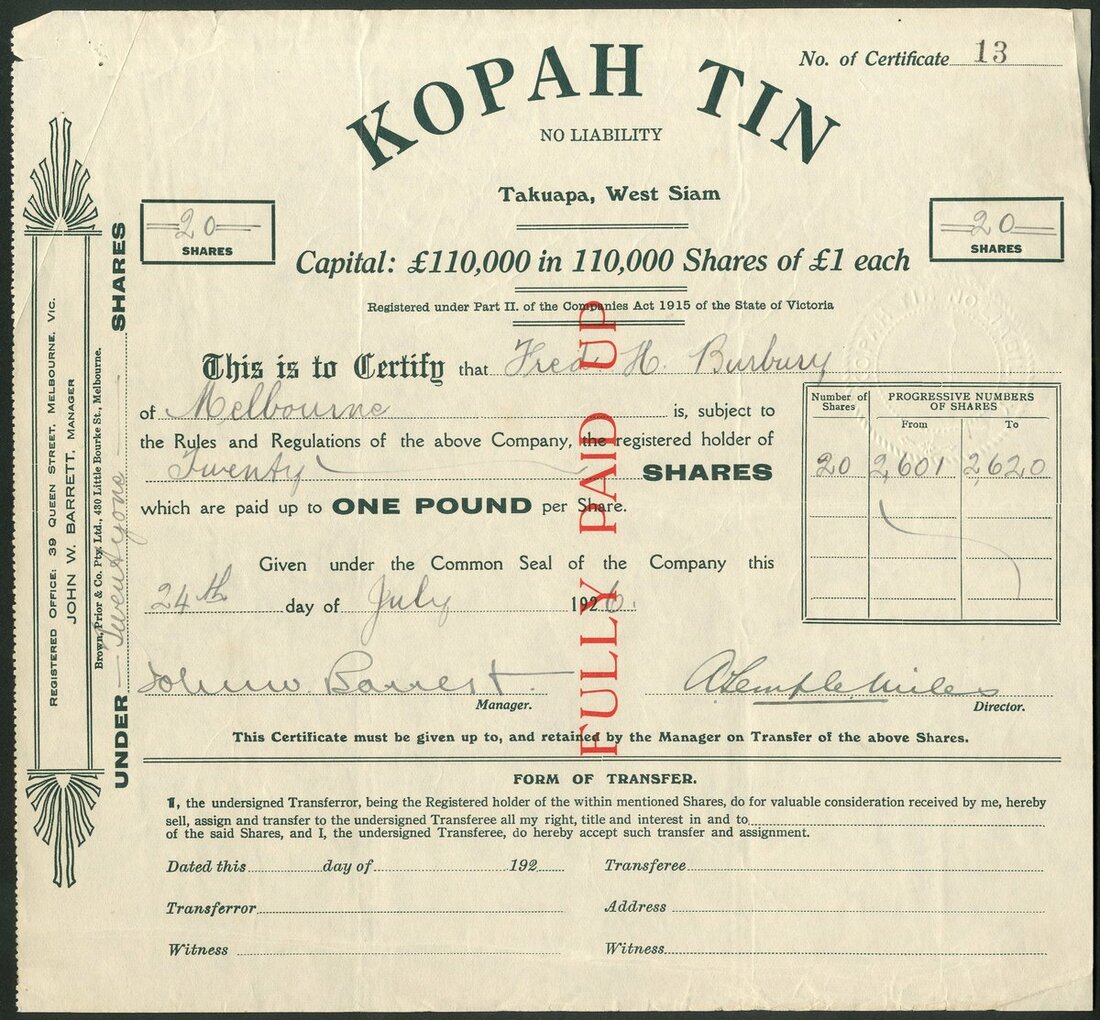 No. of Certificate 13
KOPAH TIN
NO LIABILITY
Takuapa, West Siam
20
SHARES
20
SHARES
Capital: £110,000 in 110,000 Shares of £1 each
Registered under Part II. of the Companies Act 1915 of the State of Victoria
This is to Certify that Fred H. Burbury
of Melbourne is, subject to
the Rules and Regulations of the above Company, the registered holder of
Twenty SHARES
which are paid up to ONE POUND per Share.
Number of Shares
PROGRESSIVE NUMBERS OF SHARES
From To
20 2,601 2,620
Given under the Common Seal of the Company this
24th day of July 1926.
John W. Barrett.
Manager.
A Temple Miles
Director.
This Certificate must be given up to, and retained by the Manager on Transfer of the above Shares.
FULLY PAID UP
FORM OF TRANSFER.
I, the undersigned Transferror, being the Registered holder of the within mentioned Shares, do for valuable consideration received by me, hereby
sell, assign and transfer to the undersigned Transferee all my right, title and interest in and to
of the said Shares, and I, the undersigned Transferee, do hereby accept such transfer and assignment.
Dated this day of 192 Transferee
Transferror Address
Witness Witness
REGISTERED OFFICE: 39 QUEEN STREET, MELBOURNE, VIC.
JOHN W. BARRETT, MANAGER
Brown, Prior & Co. Pty. Ltd., 430 Little Bourke St., Melbourne.
UNDER Twentyone SHARES